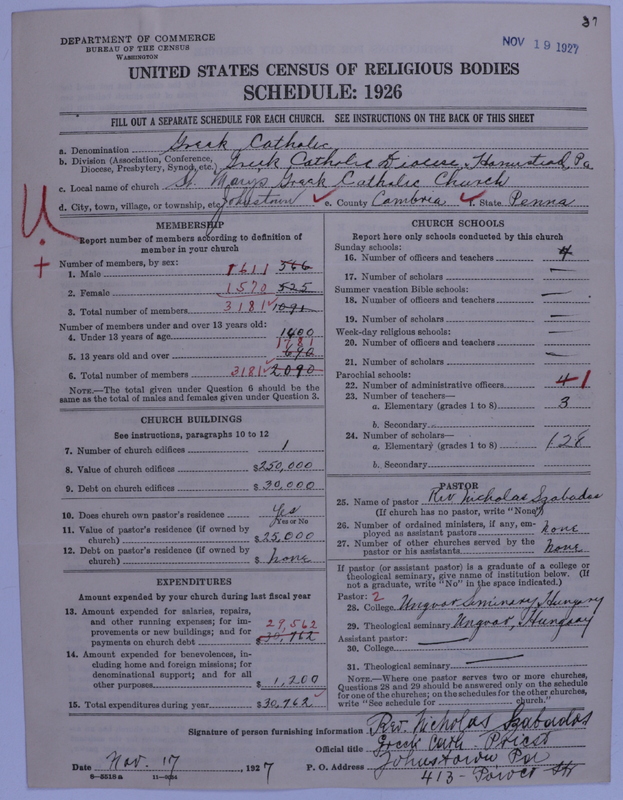 37
DEPARTMENT OF COMMERCE
BUREAU OF THE CENSUS
WASHINGTON
NOV 19 1927
UNITED STATES CENSUS OF RELIGIOUS BODIES
SCHEDULE: 1926
FILL OUT A SEPARATE SCHEDULE FOR EACH CHURCH. SEE INSTRUCTIONS ON THE BACK OF THIS SHEET
a. Denomination Greek Catholic
b. Division (Association, Conference, Diocese, Presbytery, Synod, etc.) Greek Catholic Diocese, Homestead, Pa
c. Local name of church St. Mary's Greek Catholic Church
d. City, town, village, or township, etc. Johnstown e. County Cambria f. State Penna
MEMBERSHIP
Report number of members according to definition of
member in your church
Number of members, by sex:
1. Male 1611 566
2. Female 1570 525
3. Total number of members 3181 1091
Number of members under and over 13 years old:
4. Under 13 years of age 1400
1781
5. 13 years old and over 690
6. Total number of members 3181 2090
NOTE.—The total given under Question 6 should be the
same as the total of males and females given under Question 3.
CHURCH BUILDINGS
See instructions, paragraphs 10 to 12
7. Number of church edifices 1
8. Value of church edifices $250,000
9. Debt on church edifices $30,000
10. Does church own pastor's residence Yes
Yes or No
11. Value of pastor's residence (if owned by
church) $25,000
12. Debt on pastor's residence (if owned by
church) $ none
EXPENDITURES
Amount expended by your church during last fiscal year
13. Amount expended for salaries, repairs,
and other running expenses; for im-
provements or new buildings; and for
payments on church debt 29,562 $30,762
14. Amount expended for benevolences, in-
cluding home and foreign missions; for
denominational support; and for all
other purposes $1,200
15. Total expenditures during year $30,762
CHURCH SCHOOLS
Report here only schools conducted by this church
Sunday schools:
16. Number of officers and teachers 4
17. Number of scholars —
Summer vacation Bible schools:
18. Number of officers and teachers —
19. Number of scholars —
Week-day religious schools:
20. Number of officers and teachers —
21. Number of scholars —
Parochial schools:
22. Number of administrative officers 4 1
23. Number of teachers—
a. Elementary (grades 1 to 8) 3
b. Secondary
24. Number of scholars—
a. Elementary (grades 1 to 8) 128
b. Secondary
PASTOR
25. Name of pastor Rev. Nicholas Szabados
(If church has no pastor, write "None")
26. Number of ordained ministers, if any, em-
ployed as assistant pastors none
27. Number of other churches served by the
pastor or his assistants none
If pastor (or assistant pastor) is a graduate of a college or
theological seminary, give name of institution below. (If
not a graduate, write "No" in the space indicated.)
Pastor: 2
28. College Ungvar Seminary, Hungary
29. Theological seminary Ungvar, Hungary
Assistant pastor:
30. College —
31. Theological seminary —
NOTE.—Where one pastor serves two or more churches,
Questions 28 and 29 should be answered only on the schedule
for one of the churches; on the schedules for the other churches,
write "See schedule for church."
Signature of person furnishing information Rev. Nicholas Szabados
Official title Greek Cath. Priest
Date Nov. 17, 1927 P. O. Address Johnstown Pa
8—5518a 11—9264 413 - Power St